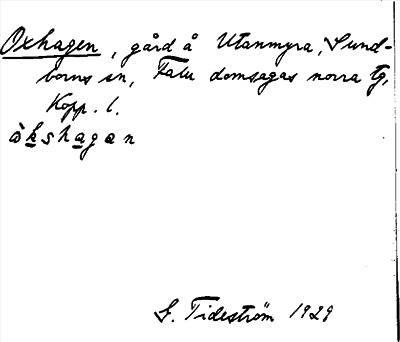 Oxhagen, gård å Utanmyra, Sund-
borns sn, Falu domsagas norra tg,
Kopp. l.
òkshagan
G. Tideström 1929